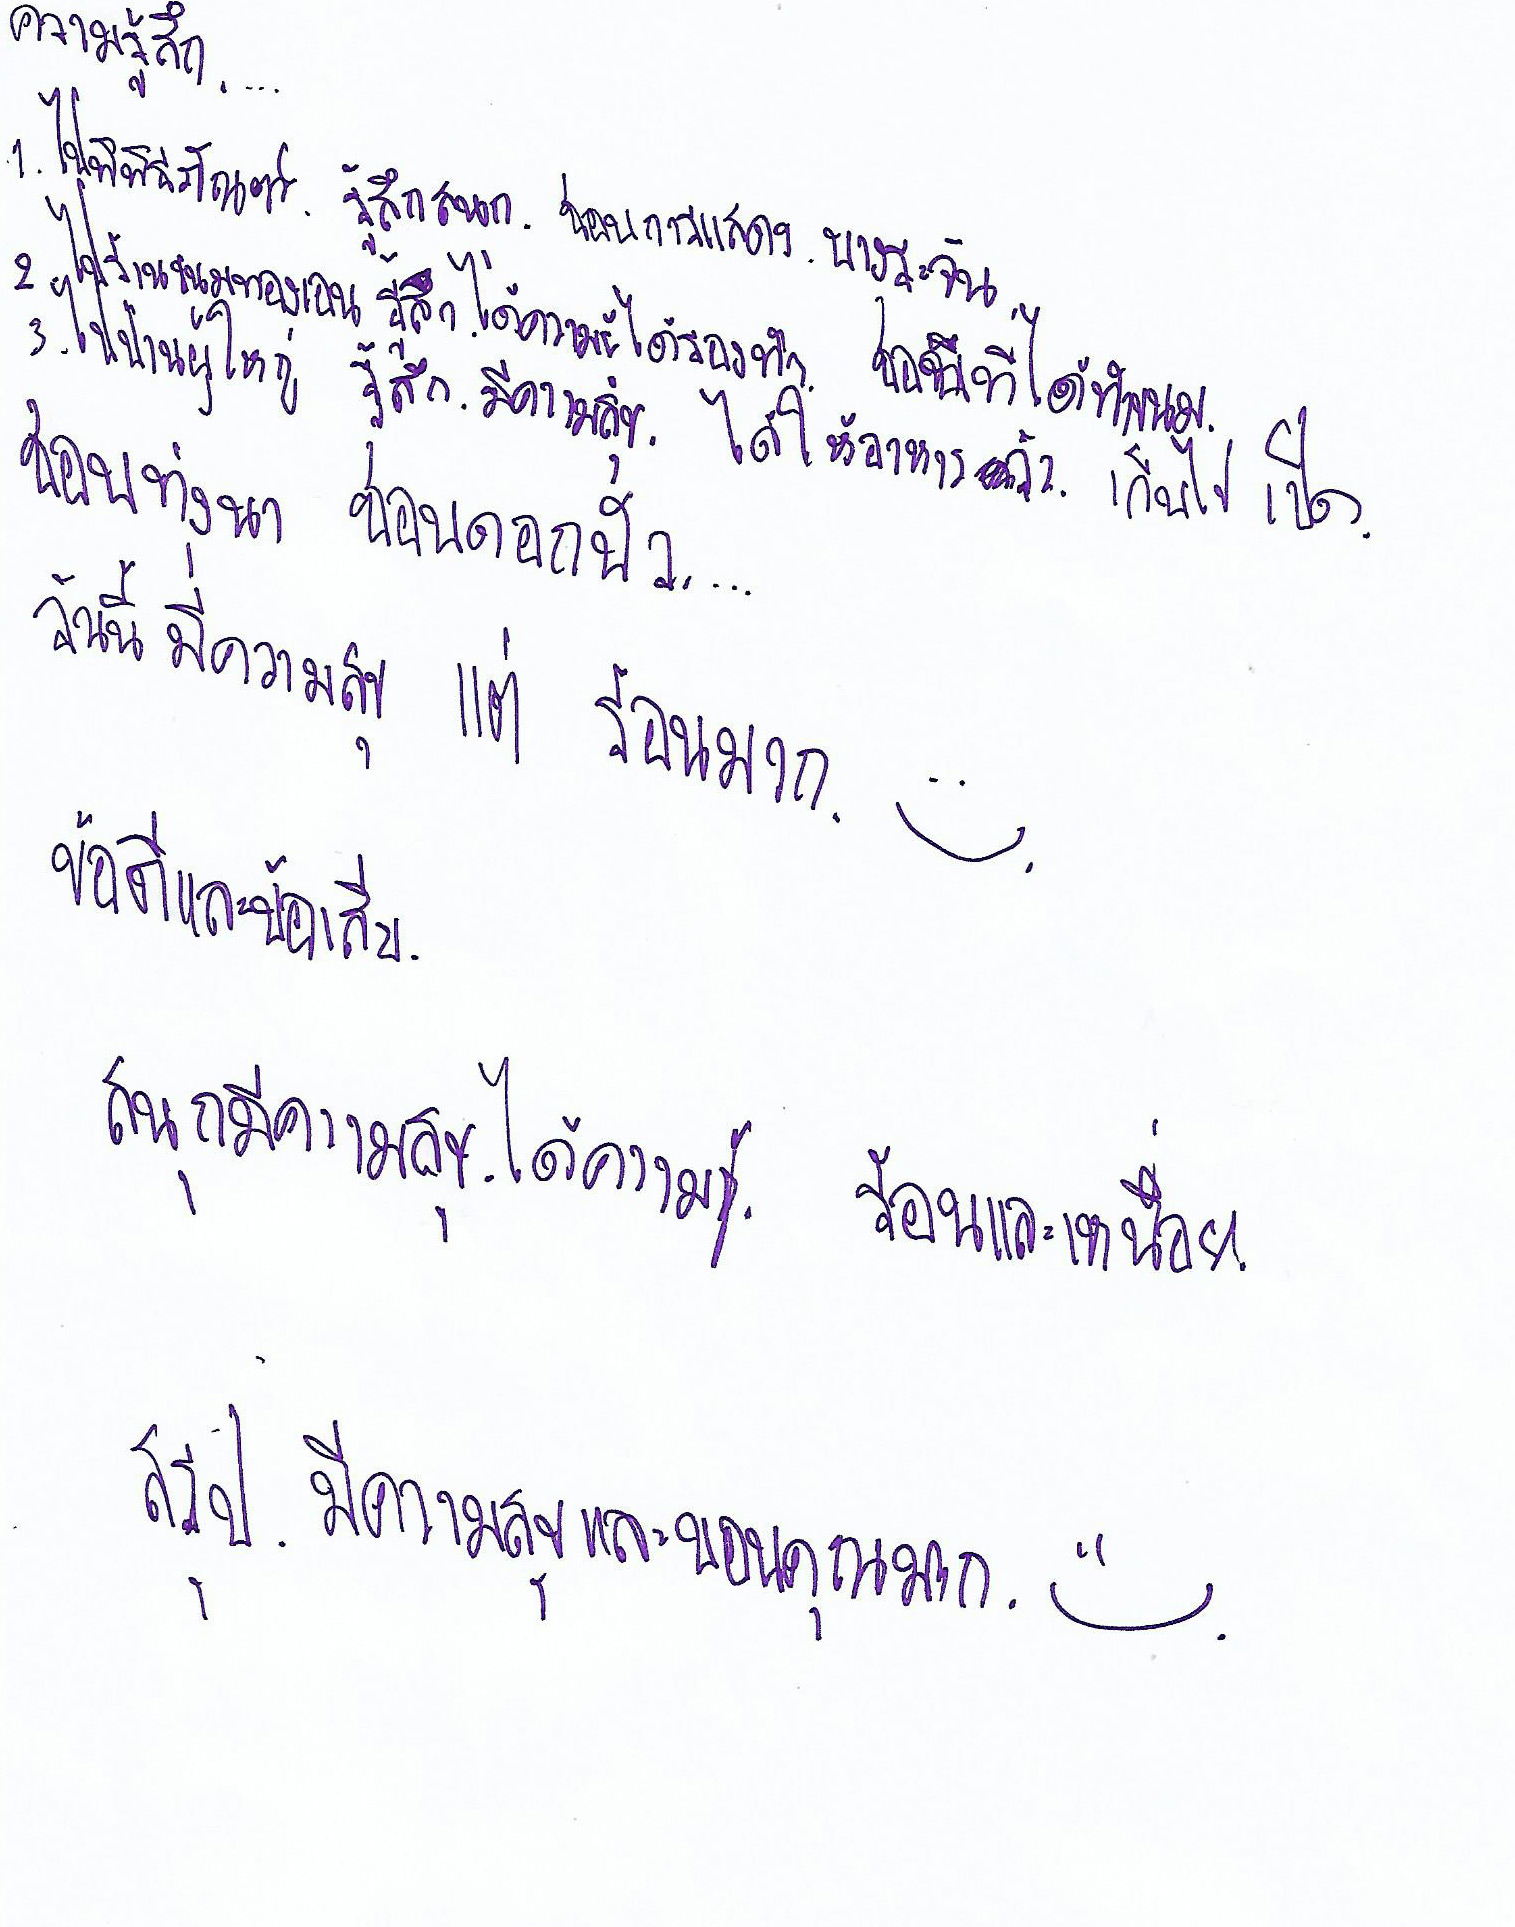 ความรู้สึก....
1. ไปพิพิธภัณฑ์. รู้สึกสนุก. ชอบการแสดง. บางระจัน.
2. ไปร้านขนมทองเอน รู้สึก.ได้ความรู้ได้ลองทำ. ชอบที่ได้ทำขนม.
3. ไปบ้านผู้ใหญ่ รู้สึก. มีความสุข. ได้ให้อาหาร เก็บไข่ เป็ด.
ชอบทุ่งนา ชอบดอกบัว....
วันนี้ มีความสุข แต่ ร้อนมาก.
ข้อดีและข้อเสีย.
สนุกมีความสุข.ได้ความรู้. ร้อนและเหนื่อย.
สรุป. มีความสุขและขอบคุณมาก.